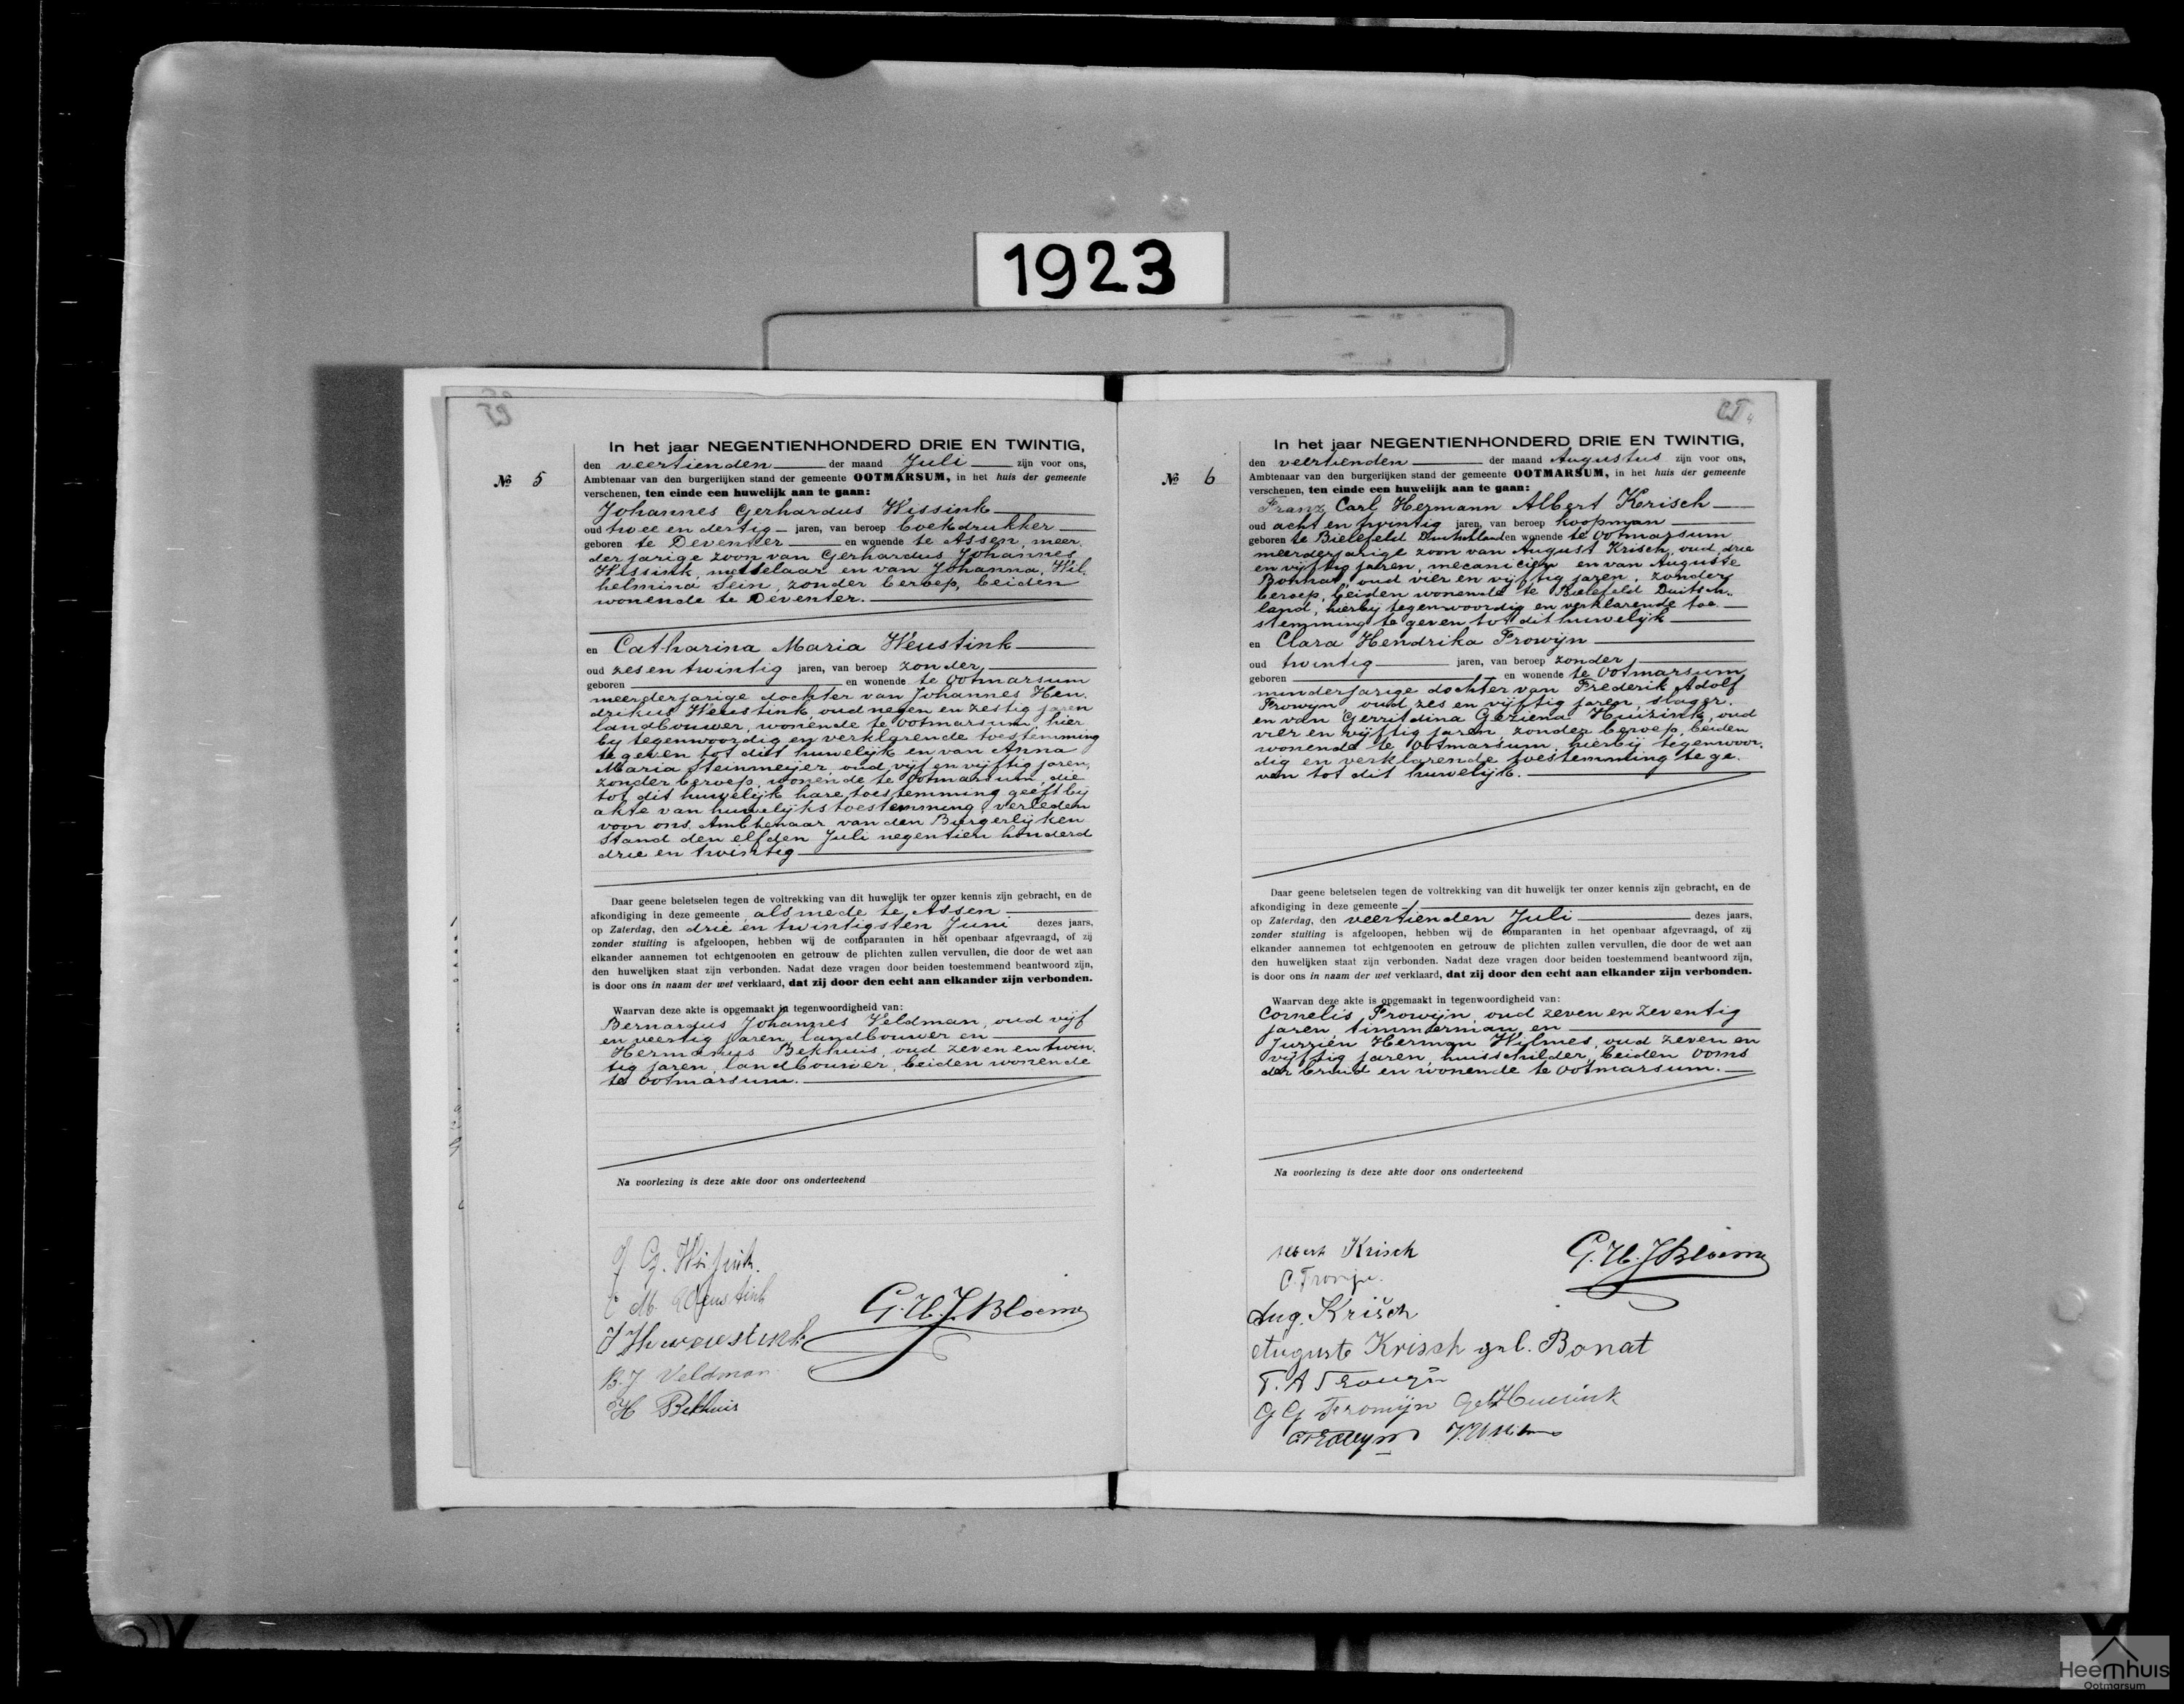 1923
№ 5
In het jaar NEGENTIENHONDERD DRIE EN TWINTIG,
den veertienden der maand Juli zijn voor ons,
Ambtenaar van den burgerlijken stand der gemeente OOTMARSUM, in het huis der gemeente
verschenen, ten einde een huwelijk aan te gaan:
Johannes Gerhardus Wissink
oud twee en dertig jaren, van beroep boekdrukker
geboren te Deventer en wonende te Assen, meer
derjarige zoon van Gerhardus Johannes
Wissink, metselaar en van Johanna, Wil
helmina Sein, zonder beroep, beiden
wonende te Deventer.
en Catharina Maria Weustink
oud zes en twintig jaren, van beroep zonder,
geboren en wonende te Ootmarsum
meerderjarige dochter van Johannes Hen
drikus Weustink, oud negen en zestig jaren
landbouwer, wonende te Ootmarsum, hier
bij tegenwoordig en verklarende toestemming
te geven tot dit huwelijk en van Anna
Maria Steinmeijer, oud vijf en vijftig jaren,
zonder beroep, wonende te Ootmarsum, die
tot dit huwelijk hare toestemming geeft bij
akte van huwelijkstoestemming verleden
voor ons Ambtenaar van den Burgerlijken
Stand den elfden Juli negentien honderd
drie en twintig
Daar geene beletselen tegen de voltrekking van dit huwelijk ter onzer kennis zijn gebracht, en de
afkondiging in deze gemeente, alsmede te Assen
op Zaterdag, den drie en twintigsten Juni dezes jaars,
zonder stuiting is afgeloopen, hebben wij de comparanten in het openbaar afgevraagd, of zij
elkander aannemen tot echtgenooten en getrouw de plichten zullen vervullen, die door de wet aan
den huwelijken staat zijn verbonden. Nadat deze vragen door beiden toestemmend beantwoord zijn,
is door ons in naam der wet verklaard, dat zij door den echt aan elkander zijn verbonden.
Waarvan deze akte is opgemaakt in tegenwoordigheid van:
Bernardus Johannes Veldman, oud vijf
en veertig jaren, landbouwer en
Hermanus Bekhuis, oud zeven en twin
tig jaren, landbouwer, beiden wonende
te Ootmarsum.
Na voorlezing is deze akte door ons onderteekend
J G. Wissink.
C M. Weustink
J H weustink
G.H.J. Bloeme
B.J Veldman
H Bekhuis
№ 6
In het jaar NEGENTIENHONDERD DRIE EN TWINTIG,
den veertienden der maand Augustus zijn voor ons,
Ambtenaar van den burgerlijken stand der gemeente OOTMARSUM, in het huis der gemeente
verschenen, ten einde een huwelijk aan te gaan:
Franz Carl Hermann Albert Krisch
oud acht en twintig jaren, van beroep koopman
geboren te Bielefeld Duitschland en wonende te Ootmarsum
meerderjarige zoon van August Krisch, oud drie
en vijftig jaren, mecanicien en van Auguste
Bonnat, oud vier en vijftig jaren, zonder
beroep, beiden wonende te Bielefeld Duitsch
land, hierbij tegenwoordig en verklarende toe
stemming te geven tot dit huwelijk
en Clara Hendrika Frowijn
oud twintig jaren, van beroep zonder,
geboren en wonende te Ootmarsum
minderjarige dochter van Frederik Adolf
Frowijn oud zes en vijftig jaren, slager,
en van Gerritdina Geziena Huizink, oud
vier en vijftig jaren, zonder beroep, beiden
wonende te Ootmarsum, hierbij tegenwoor
dig en verklarende toestemming te ge
ven tot dit huwelijk.
Daar geene beletselen tegen de voltrekking van dit huwelijk ter onzer kennis zijn gebracht, en de
afkondiging in deze gemeente
op Zaterdag, den veertienden Juli dezes jaars,
zonder stuiting is afgeloopen, hebben wij de comparanten in het openbaar afgevraagd, of zij
elkander aannemen tot echtgenooten en getrouw de plichten zullen vervullen, die door de wet aan
den huwelijken staat zijn verbonden. Nadat deze vragen door beiden toestemmend beantwoord zijn,
is door ons in naam der wet verklaard, dat zij door den echt aan elkander zijn verbonden.
Waarvan deze akte is opgemaakt in tegenwoordigheid van:
Cornelis Frowijn, oud zeven en zeventig
jaren, timmerman, en
Jurrien Herman Wilmes, oud zeven en
vijftig jaren, huisschilder, beiden ooms
der bruid en wonende te Ootmarsum.
Na voorlezing is deze akte door ons onderteekend
Albert Krisch
G.H.J Bloeme
C. Frowijn.
Aug. Krisch
Auguste Krisch geb. Bonat
F. A Frowijn
G G Frowijn Geb Huisink
Heemhuis
Ootmarsum